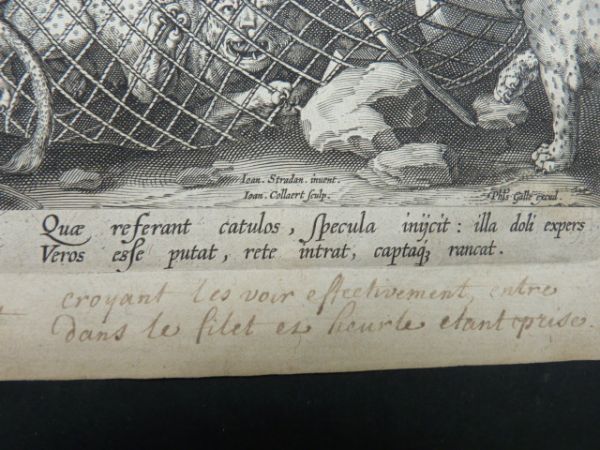 Ioan. Stradan. invent.
Ioan. Collaert sculp.
Phls Galle excud.
Quæ referant catulos, specula inijcit: illa doli expers
Veros esse putat, rete intrat, captaq; rancat.
croyant les voir effectivement, entre
dans le filet et heurle etant prise.